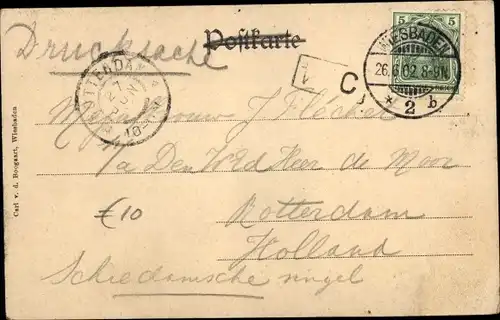 Postkarte
Drucksache
5 5
WIESBADEN
26.6.02 8-9N.
* 2 b
ROTTERDAM
27 JUN
C
Mejufvrouw J Flécher
Pa Den WEd Heer de Moor
Rotterdam
Holland
Schiedamsche singel
£10
Carl v. d. Boogaart, Wiesbaden